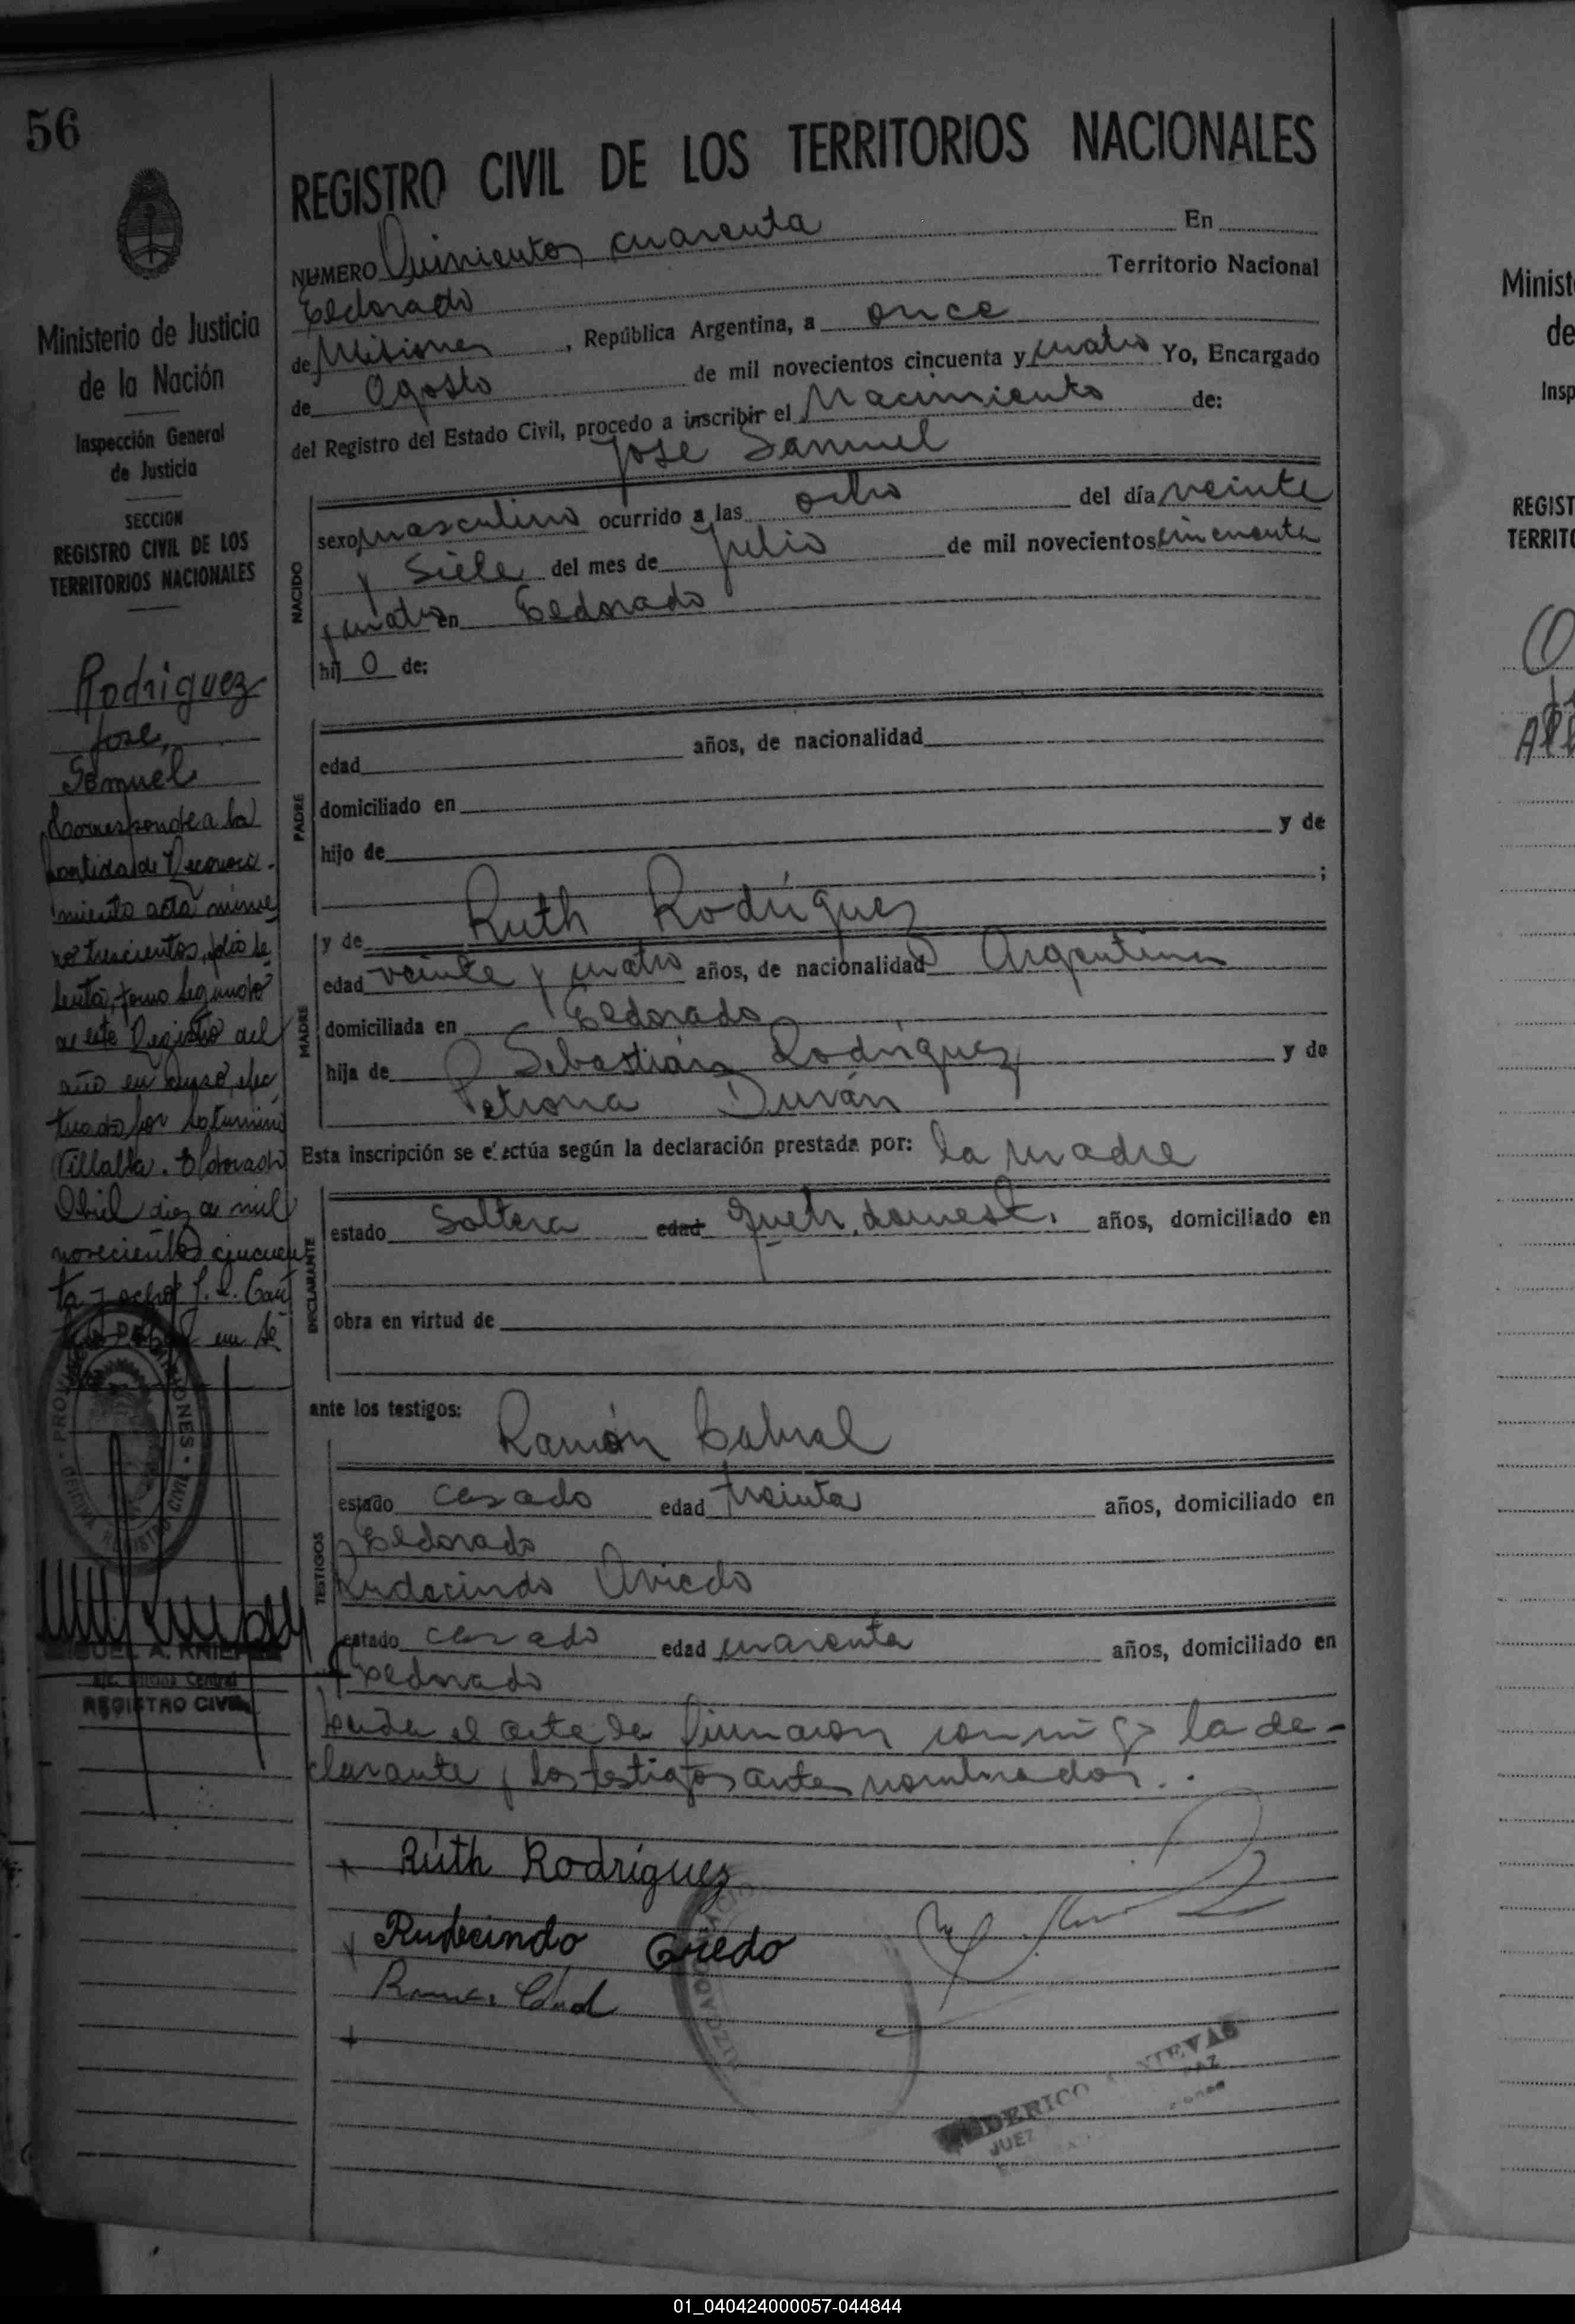 56
Ministerio de Justicia
de la Nación
Inspección General
de Justicia
SECCION
REGISTRO CIVIL DE LOS
TERRITORIOS NACIONALES
Rodriguez
José,
Samuel
Corresponde a la
partida de Reconoci-
miento acta núme
ro trescientos, folio se
senta, tomo segundo
de este Registro del
año en curso, efec
tuado por Saturnino
Villalba. Eldorado
Abril diez de mil
novecientos cincuen
ta y ocho
REGISTRO CIVIL
REGISTRO CIVIL DE LOS TERRITORIOS NACIONALES
NUMERO Quinientos cuarenta En
Eldorado Territorio Nacional
de Misiones, República Argentina, a once
de Agosto de mil novecientos cincuenta y cuatro Yo, Encargado
del Registro del Estado Civil, procedo a inscribir el Nacimiento de:
José Samuel
NACIDO
sexo masculino ocurrido a las ocho del día veinte
y Siete del mes de Julio de mil novecientos cincuenta
y cuatro en Eldorado
hij o de:
PADRE
edad años, de nacionalidad
domiciliado en
hijo de y de
;
MADRE
y de Ruth Rodríguez
edad veinte y cuatro años, de nacionalidad Argentina
domiciliada en Eldorado
hija de Sebastián Rodríguez y de
Petrona Durán
Esta inscripción se efectúa según la declaración prestada por: la madre
DECLARANTE
estado Soltera edad Queh. domest. años, domiciliado en
obra en virtud de
ante los testigos:
Ramón Cabral
TESTIGOS
estado casado edad treinta años, domiciliado en
Eldorado
Rudecindo Oviedo
estado casado edad cuarenta años, domiciliado en
Eldorado
Leída el acta la firmaron conmigo la de-
clarante y los testigos antes nombrados.
Ruth Rodríguez
Rudecindo Oviedo
JUEZ
Minist
de
Insp
REGIST
TERRITO
01_040424000057-044844